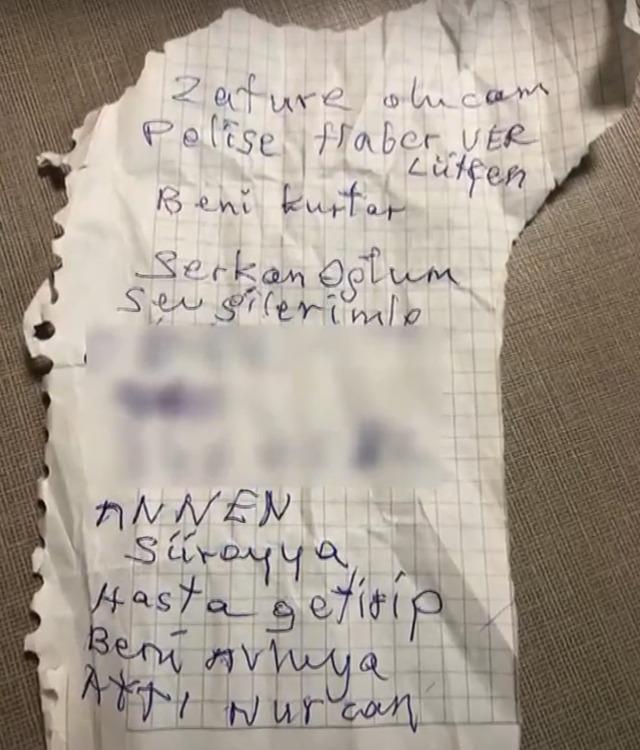 Zature olucam
Polise Haber VER
Lütfen
Beni kurtar
Serkan Oğlum
Sevgilerimle
ANNEN
Süreyya
Hasta getirip
Beni Avluya
Attı Nurcan